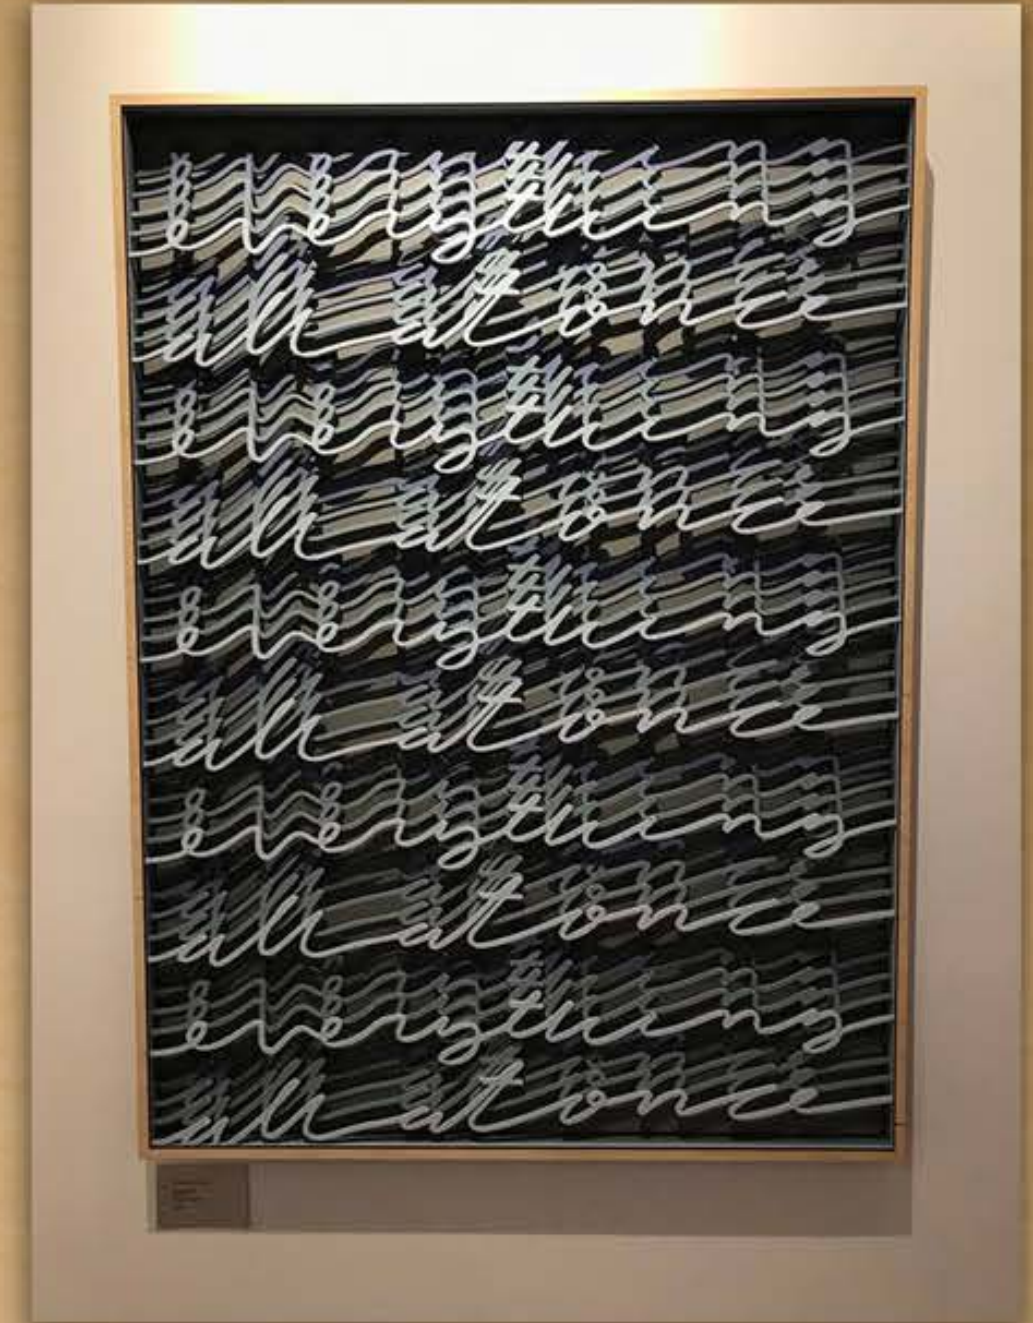 everything
all at once
everything
all at once
everything
all at once
everything
all at once
everything
all at once